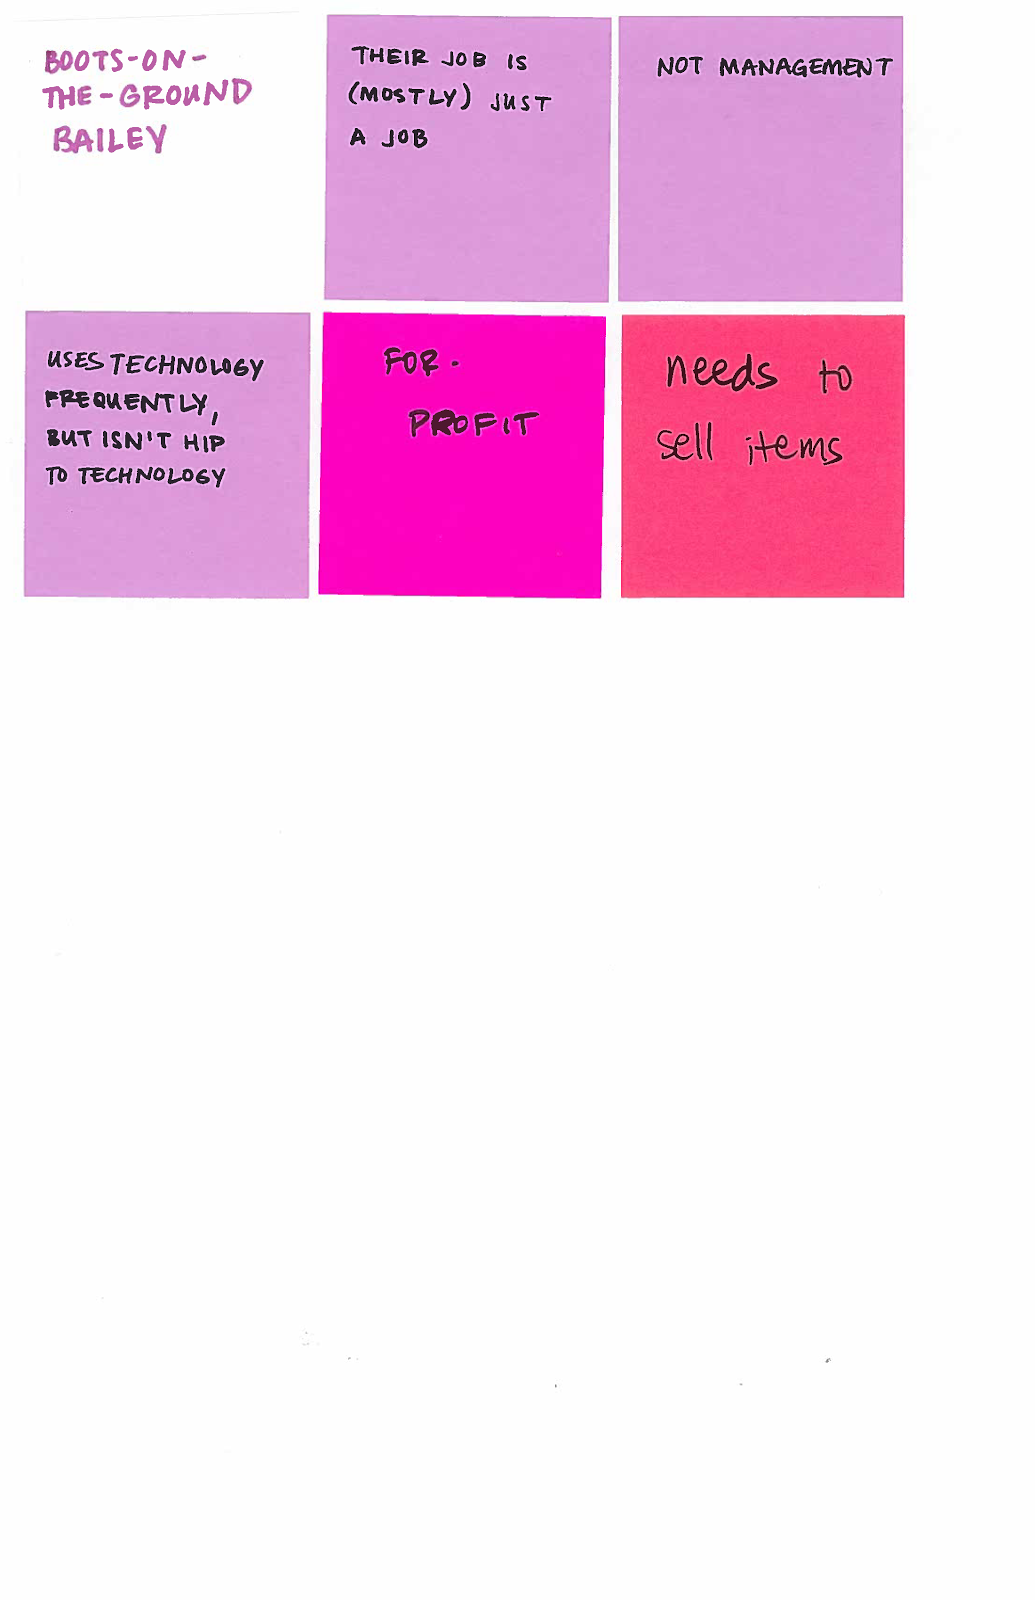 BOOTS-ON-
THE-GROUND
BAILEY
THEIR JOB IS
(MOSTLY) JUST
A JOB
NOT MANAGEMENT
USES TECHNOLOGY
FREQUENTLY,
BUT ISN'T HIP
TO TECHNOLOGY
FOR-
PROFIT
needs to
sell items